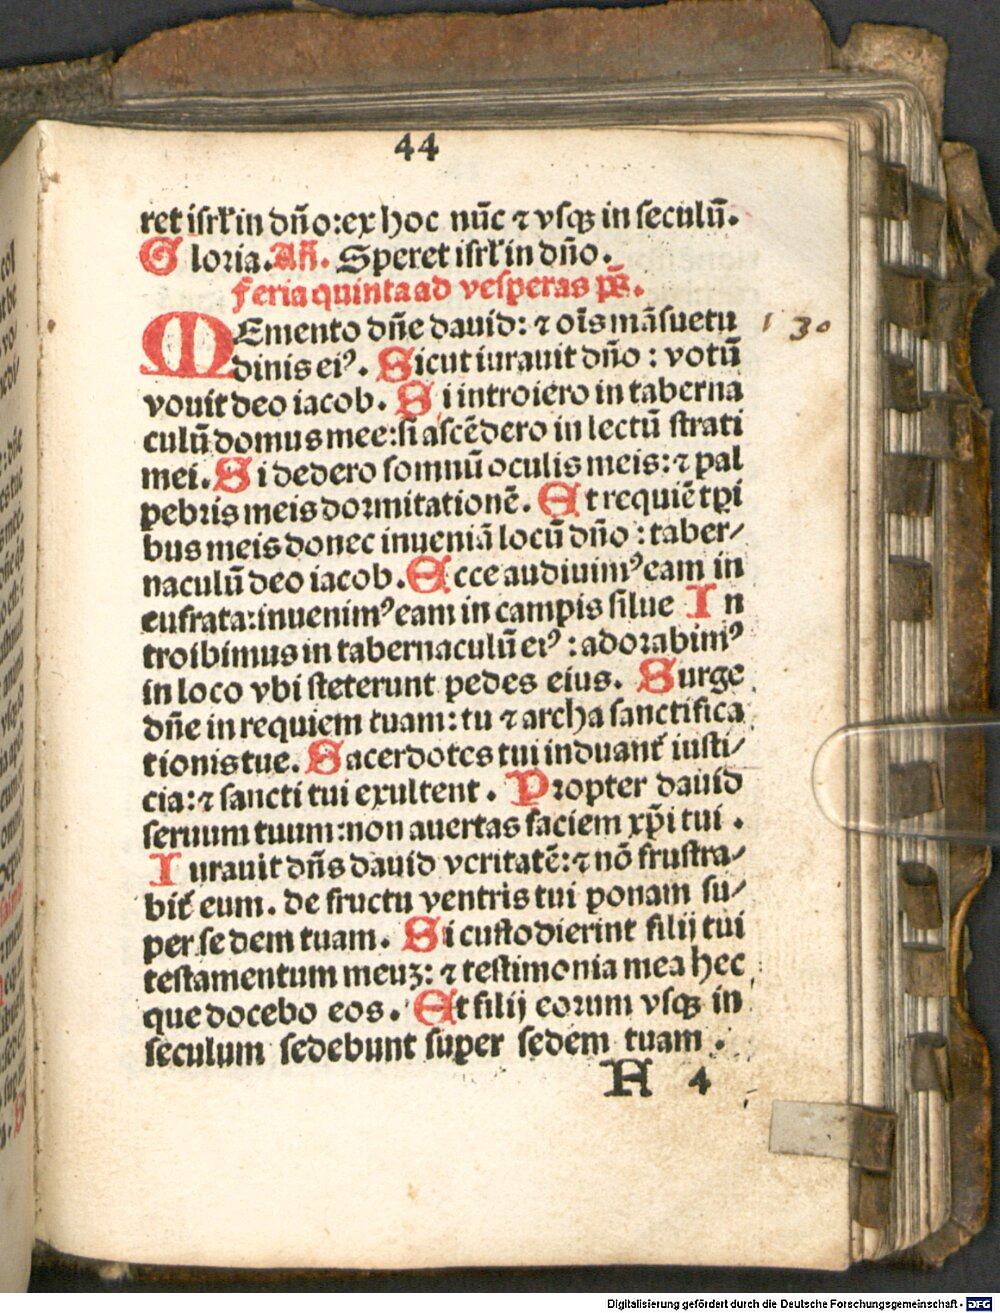 44
ret isrl' in dño: ex hoc nūc ⁊ vsqꝫ in seculū.
Gloria. Añ. Speret isrl' in dño.
Feria quinta ad vesperas p̄s.
MEmento dñe dauid: ⁊ oīs māsuetu
dinis eiꝰ. Sicut iurauit dño: votū
vouit deo iacob. Si introiero in taberna
culū domus mee: si ascēdero in lectū strati
mei. Si dedero somnū oculis meis: ⁊ pal
pebris meis dormitationē. Et requiē tp̄i
bus meis donec inueniā locū dño: taber/
naculū deo iacob. Ecce audiuimꝰ eam in
eufrata: inuenimꝰ eam in campis silue In
troibimus in tabernaculū eiꝰ: adorabimꝰ
in loco vbi steterunt pedes eius. Surge
dñe in requiem tuam: tu ⁊ archa sanctifica
tionis tue. Sacerdotes tui induant̄ iusti/
cia: ⁊ sancti tui exultent. Propter dauid
seruum tuum: non auertas faciem xp̄i tui.
Iurauit dñs dauid veritatē: ⁊ nō frustra/
bit̄ eum. de fructu ventris tui ponam su/
per se dem tuam. Si custodierint filij tui
testamentum meuꝫ: ⁊ testimonia mea hec
que docebo eos. Et filij eorum vsqꝫ in
seculum sedebunt super sedem tuam.
H 4
130
Digitalisierung gefördert durch die Deutsche Forschungsgemeinschaft - DFG